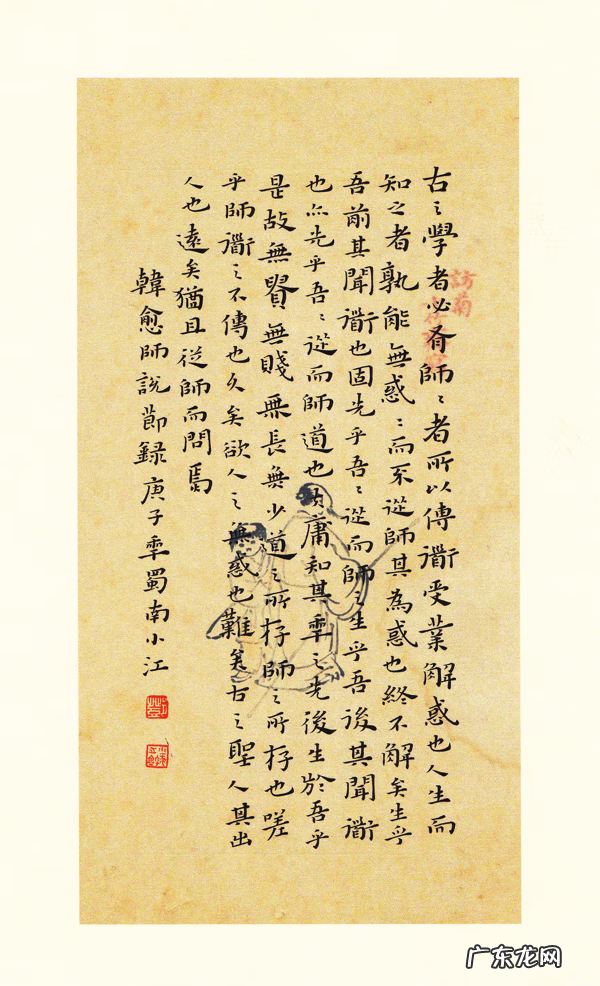 古之學者必有師〻者所以傳衜受業解惑也人生而
知之者孰能無惑〻而不從師其為惑也終不解矣生乎
吾前其聞衜也固先乎吾〻從而師之生乎吾後其聞衜
也亦先乎吾〻從而師道也夫庸知其年之先後生於吾乎
是故無貴無賤無長無少道之所存師之所存也嗟
乎師衜之不傳也久矣欲人之無惑也難矣古之聖人其出
人也遠矣猶且從師而問焉
韓愈師說節錄庚子年蜀南小江
訪菊
广东龙网